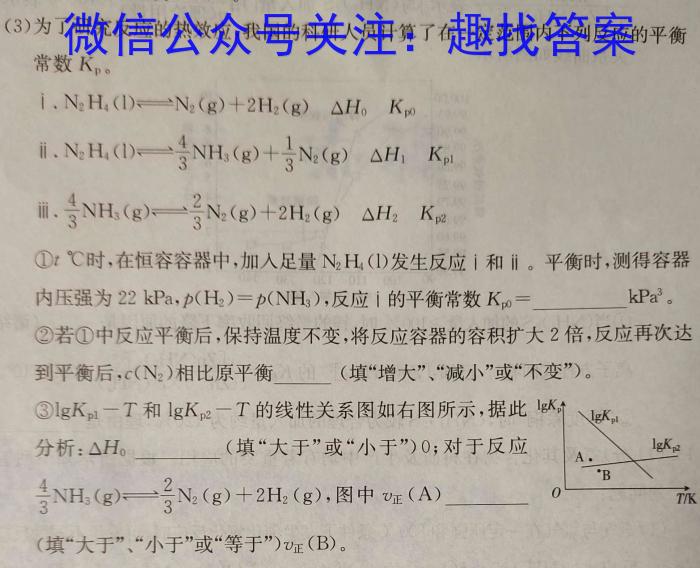 微信公众号关注：趣找答案
(3)为了 反应的热效应,我国的科研人员计算了在一定范围内下列反应的平衡
常数 Kₚ。
ⅰ. N₂H₄(l)⇌N₂(g)+2H₂(g) △H₀ Kₚ₀
ⅱ. N₂H₄(l)⇌4/3NH₃(g)+1/3N₂(g) △H₁ Kₚ₁
ⅲ. 4/3NH₃(g)⇌2/3N₂(g)+2H₂(g) △H₂ Kₚ₂
①t ℃时,在恒容容器中,加入足量 N₂H₄(l)发生反应ⅰ和ⅱ。平衡时,测得容器
内压强为 22 kPa,p(H₂)=p(NH₃),反应ⅰ的平衡常数 Kₚ₀=________kPa³。
②若①中反应平衡后,保持温度不变,将反应容器的容积扩大 2 倍,反应再次达
到平衡后,c(N₂)相比原平衡____(填“增大”、“减小”或“不变”)。
③lgKₚ₁－T 和 lgKₚ₂－T 的线性关系图如右图所示,据此
分析:△H₀ (填“大于”或“小于”)0;对于反应
4/3NH₃(g)⇌2/3N₂(g)+2H₂(g),图中 v正(A)________
(填“大于”、“小于”或“等于”)v正(B)。
lgKₚ
lgKₚ₁
lgKₚ₂
A
B
O
T/K